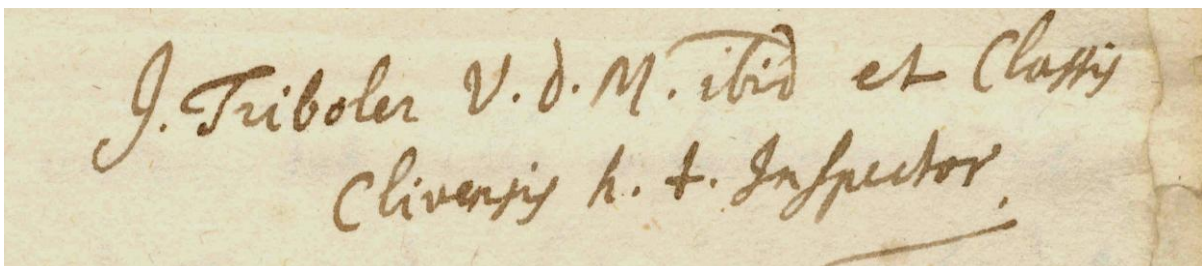 J. Triboler V. d. M. ibid et Classis
Clivensis h. t. Inspector.